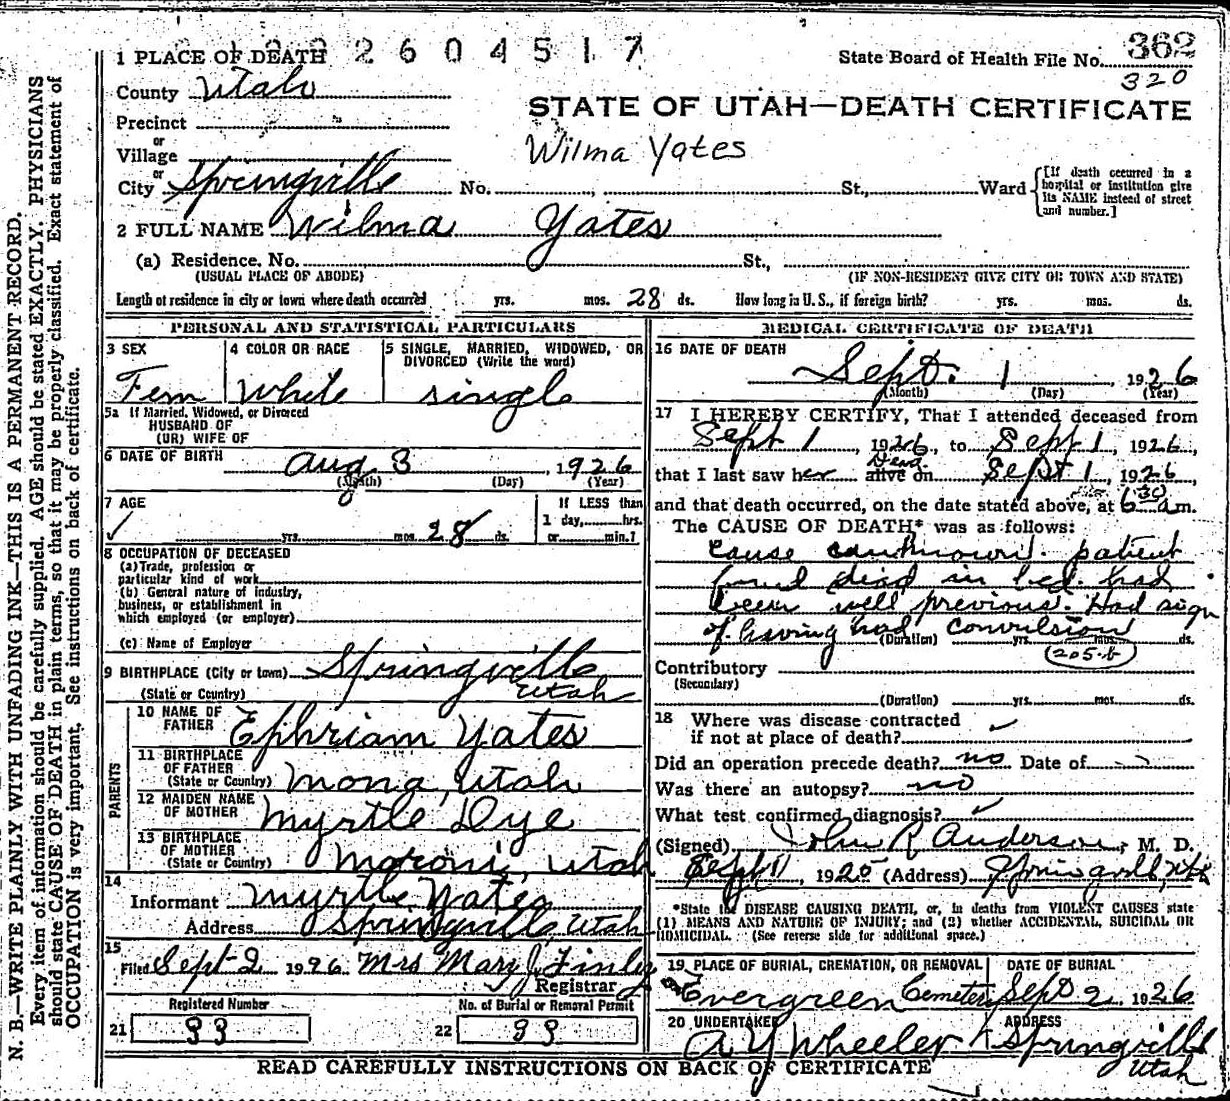 1 PLACE OF DEATH 2 6 0 4 5 1 7
State Board of Health File No. 362
320
County Utah
STATE OF UTAH—DEATH CERTIFICATE
Precinct
or
Village
Wilma Yates
or
City Springville No. , St., Ward
[If death occurred in a hospital or institution give its NAME instead of street and number.]
2 FULL NAME Wilma Yates
(a) Residence. No. St.,
(USUAL PLACE OF ABODE) (IF NON-RESIDENT GIVE CITY OR TOWN AND STATE)
Length of residence in city or town where death occurred yrs. mos. 28 ds. How long in U. S., if foreign birth? yrs. mos. ds.
PERSONAL AND STATISTICAL PARTICULARS
3 SEX
Fem
4 COLOR OR RACE
White
5 SINGLE, MARRIED, WIDOWED, OR
DIVORCED (Write the word)
single
5a If Married, Widowed, or Divorced
HUSBAND OF
(OR) WIFE OF
6 DATE OF BIRTH Aug 3, 1926
(Month) (Day) (Year)
7 AGE
yrs. mos. 28 ds.
If LESS than
1 day, hrs.
or min.?
8 OCCUPATION OF DECEASED
(a) Trade, profession or
particular kind of work
(b) General nature of industry,
business, or establishment in
which employed (or employer)
(c) Name of Employer
9 BIRTHPLACE (City or town) Springville
(State or Country) Utah
PARENTS
10 NAME OF
FATHER Ephriam Yates
11 BIRTHPLACE
OF FATHER
(State or Country) Mona, Utah
12 MAIDEN NAME
OF MOTHER Myrtle Dye
13 BIRTHPLACE
OF MOTHER
(State or Country) Moroni, Utah
14
Informant Myrtle Yates
Address Springville, Utah
15
Filed Sept-2 1926 Mrs Mary J. Finley
Registrar
Registered Number
21 33
No. of Burial or Removal Permit
22 33
MEDICAL CERTIFICATE OF DEATH
16 DATE OF DEATH
Sept. 1, 1926
(Month) (Day) (Year)
17 I HEREBY CERTIFY, That I attended deceased from
Sept 1 1926, to Sept 1 1926,
Dead
that I last saw her alive on Sept 1, 1926,
and that death occurred, on the date stated above, at 6 30 a.m.
The CAUSE OF DEATH* was as follows:
cause unknown. patient
found dead in bed. had
been well previous. Had sign
of having had convulsion
(Duration) yrs. mos. ds.
205-b
Contributory
(Secondary)
(Duration) yrs. mos. ds.
18 Where was disease contracted
if not at place of death?
Did an operation precede death? no Date of
Was there an autopsy? no
What test confirmed diagnosis?
(Signed) John R Anderson, M. D.
Sept 11, 1925 (Address) Springville, Utah
*State the DISEASE CAUSING DEATH, or, in deaths from VIOLENT CAUSES state
(1) MEANS AND NATURE OF INJURY; and (2) whether ACCIDENTAL, SUICIDAL OR
HOMICIDAL. (See reverse side for additional space.)
19 PLACE OF BURIAL, CREMATION, OR REMOVAL
Evergreen Cemetery
DATE OF BURIAL
Sept 2, 1926
20 UNDERTAKER
A Y Wheeler
ADDRESS
Springville
Utah
READ CAREFULLY INSTRUCTIONS ON BACK OF CERTIFICATE
N. B.—WRITE PLAINLY WITH UNFADING INK—THIS IS A PERMANENT RECORD.
Every item of information should be carefully supplied. AGE should be stated EXACTLY. PHYSICIANS
should state CAUSE OF DEATH in plain terms, so that it may be properly classified. Exact statement of
OCCUPATION is very important. See instructions on back of certificate.